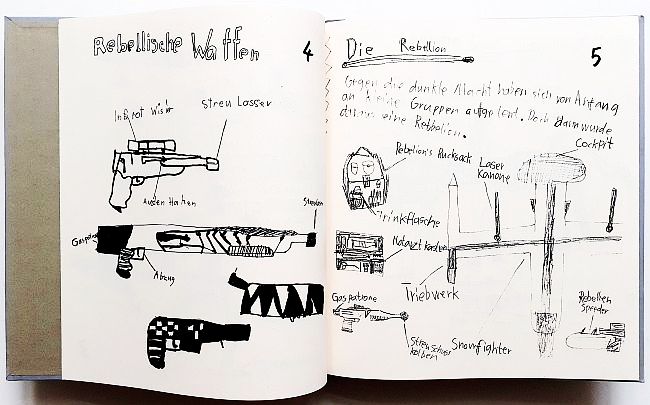 Rebellische Waffen
4
Infrarot Visir
Streu Lasser
Außen Hahen
Streulau
Gaspatrone
Abzug
Die Rebellion
5
Gegen die dunkle Macht haben sich von Anfang
an kleine Gruppen aufgelent. Doch dann wurde
daraus eine Rebbelion.
Cockpit
Rebellion's Rucksack
Laser
Kanone
Trinkflasche
Notarzt kasten
Triebwerk
Gaspatrone
Streu Schuss
kolben
Snowfighter
Rebellen
Speeder